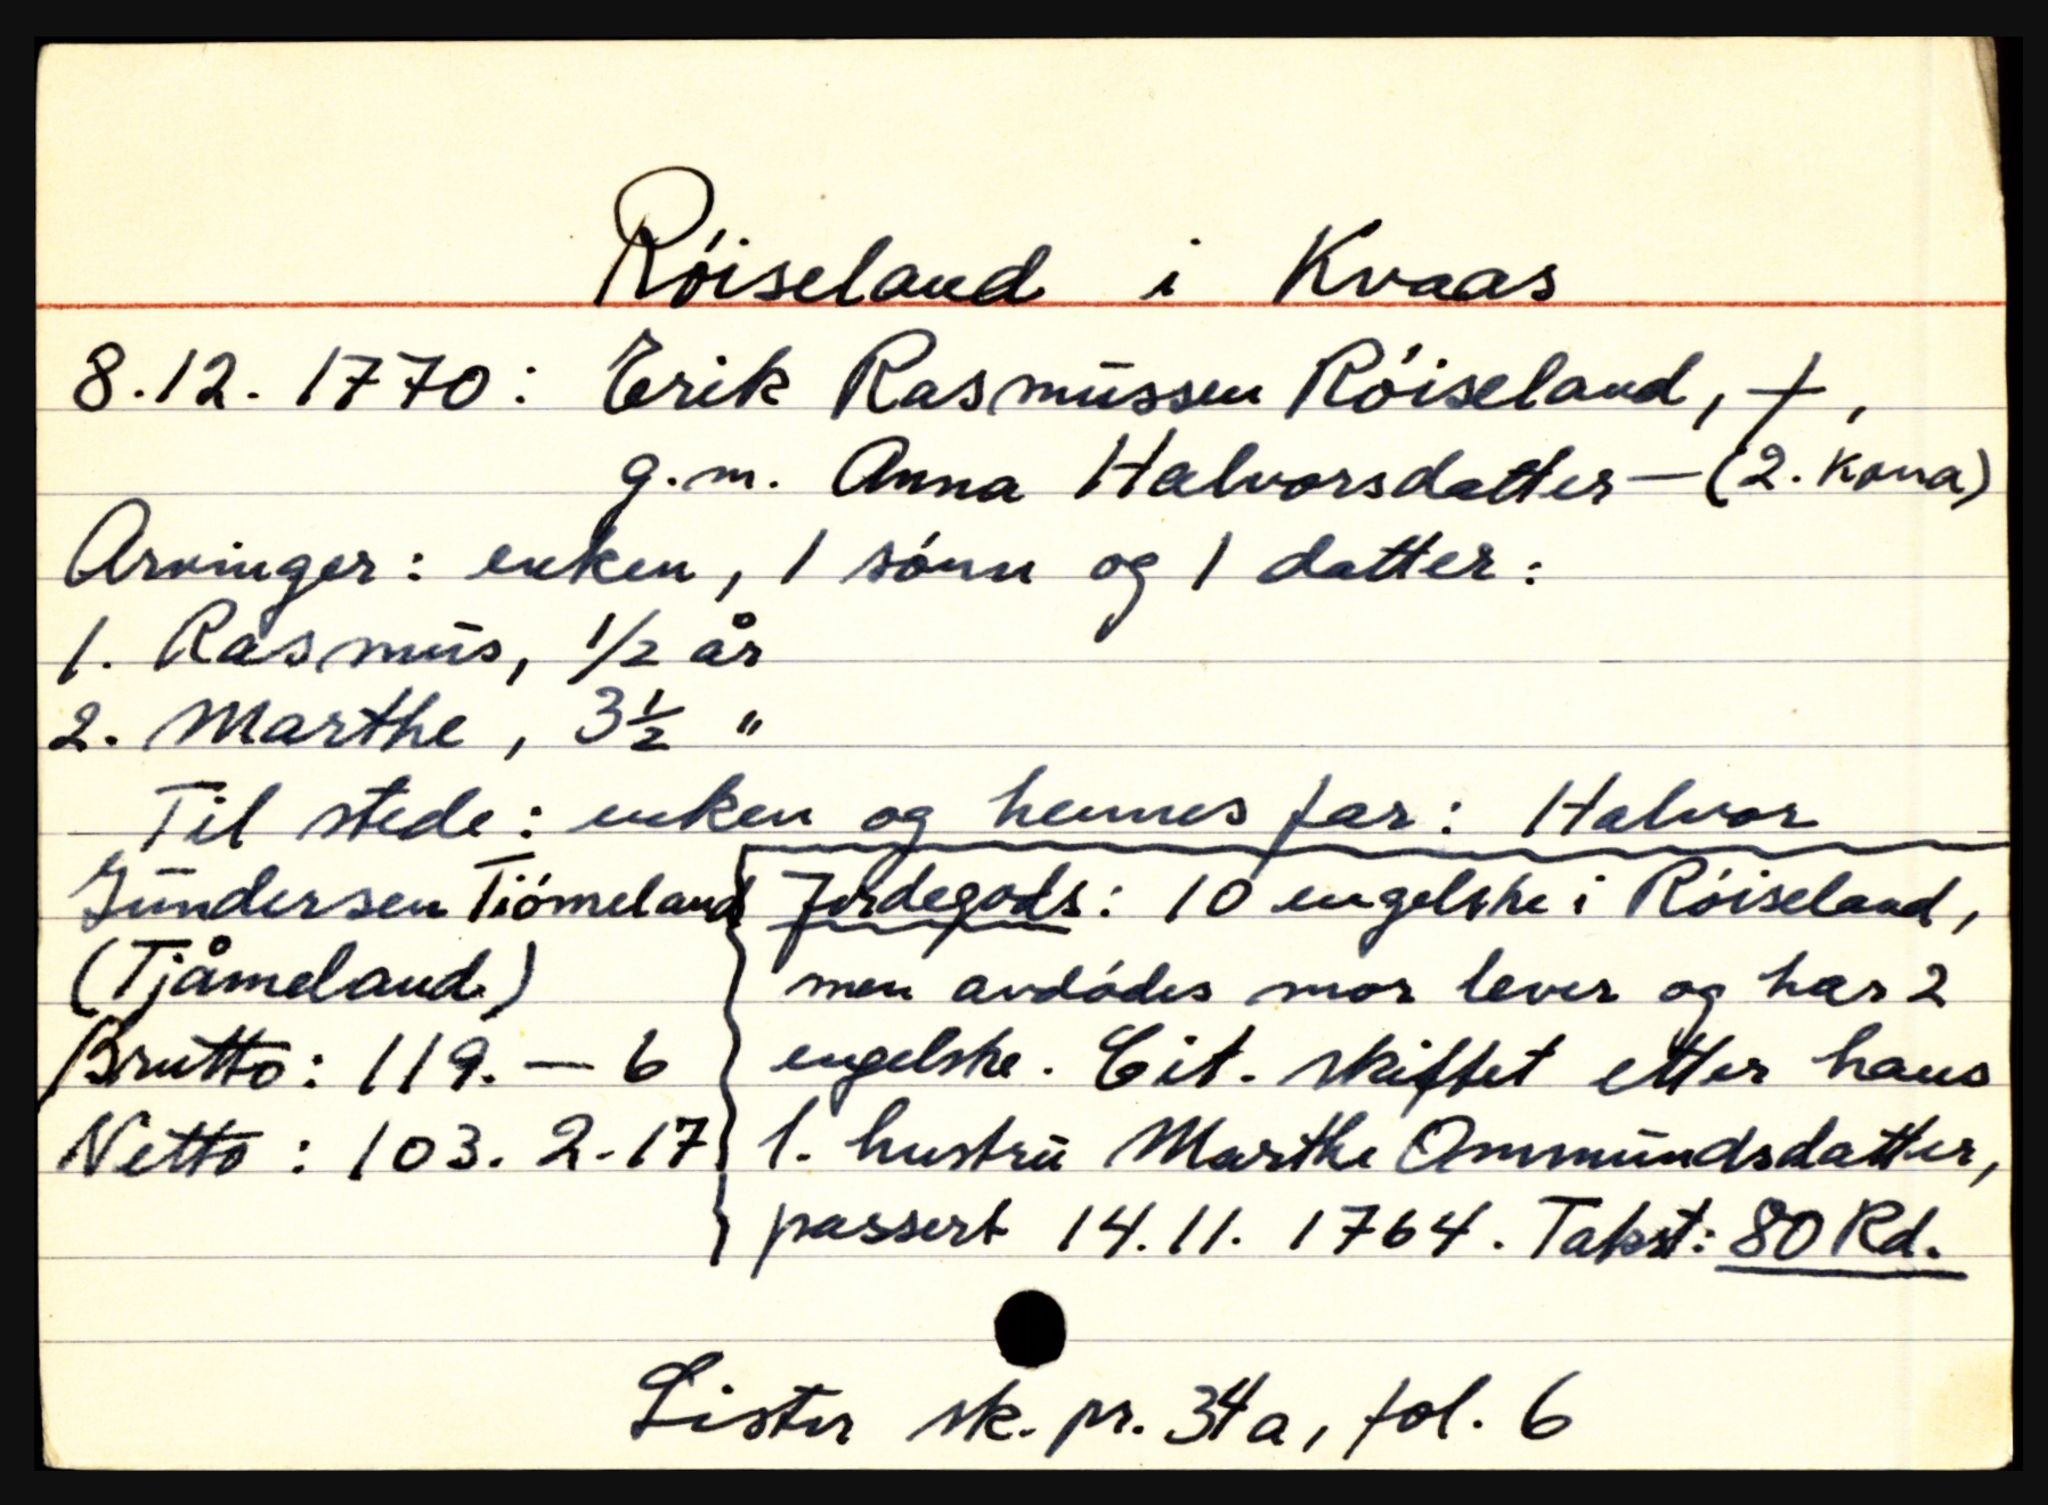 Röiseland i Kvaas
8.12. 1770: Erik Rasmussen Röiseland, †,
g.m. Anna Halvorsdatter — (2. kona)
Arvinger: enken, 1 sónn og 1 datter:
1. Rasmus, 1/2 år
2. Marthe, 3 1/2 "
Til stede: enken og hennes far: Halvor
Gundersen Tiómeland
(Tjåmeland)
Brutto: 119. — 6
Netto: 103. 2-17
Jordegods: 10 engelske i Róiseland,
men avdódes mor lever og har 2
engelske. Cit. skiftet etter hans
1. hustru Marthe Ommundsdatter,
passert 14.11. 1764. Takst: 80 Rd.
Lister sk. pr. 34a, fol. 6